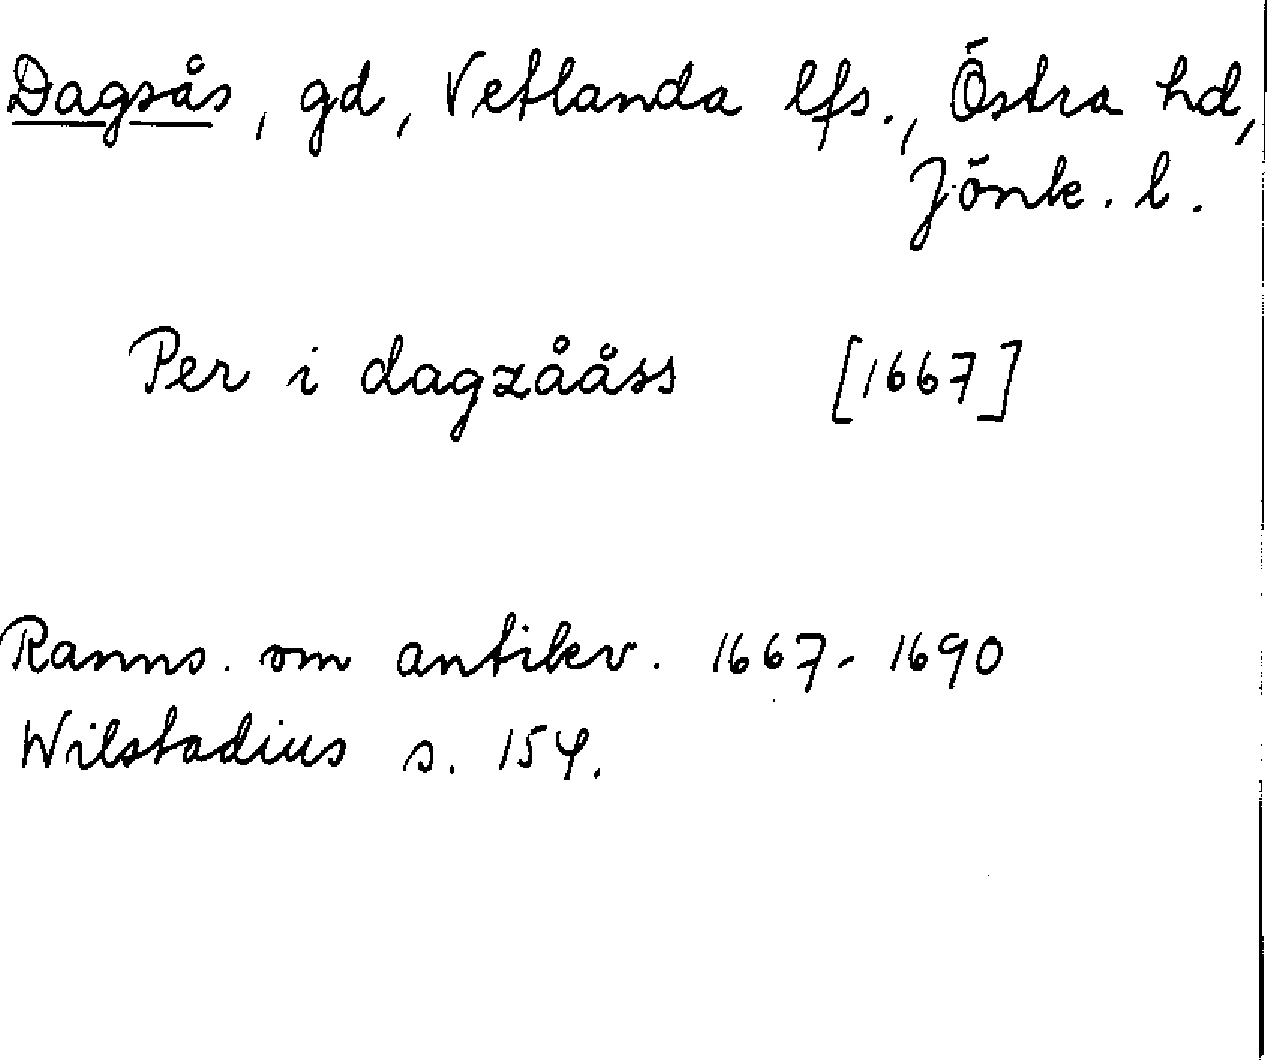 Dagsås, gd, Vetlanda lfs., Östra hd,
Jönk. l.
Per i dagzååss [1667]
Ranns. om antikv. 1667-1690
Wilstadius s. 154.